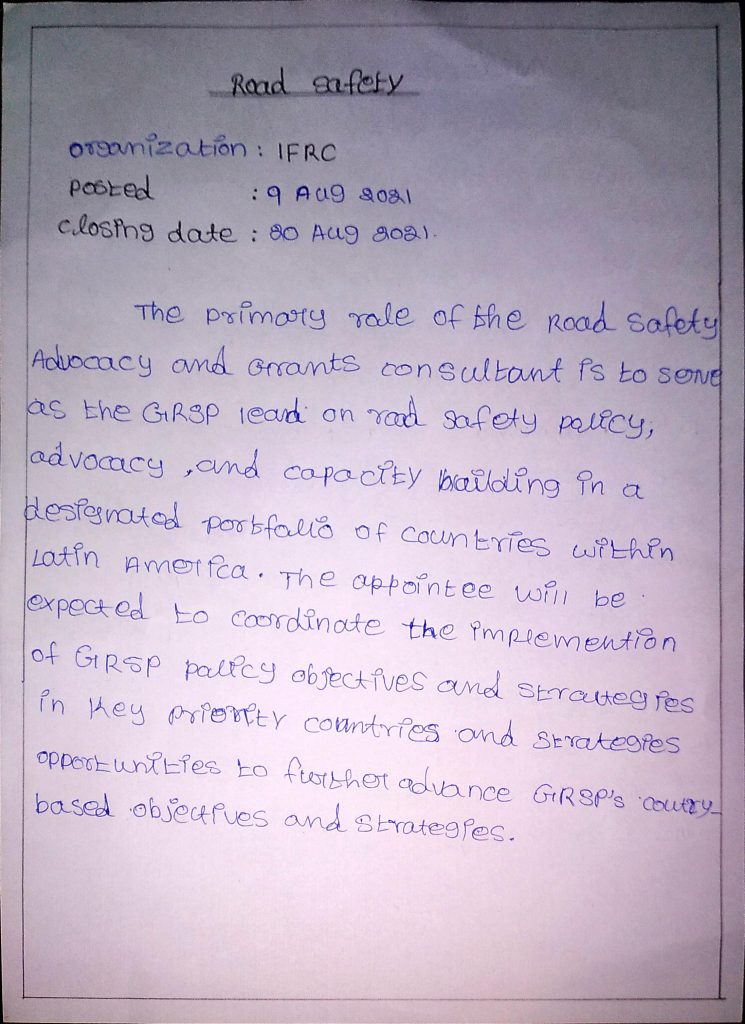 Road safety
organization : IFRC
posted : 9 Aug 2021
closing date : 20 Aug 2021.
The primary role of the Road Safety
Advocacy and Grants consultant is to serve
as the GRSP lead on road safety policy,
advocacy, and capacity building in a
designated portfolio of countries within
Latin America. The appointee will be
expected to coordinate the implemention
of GRSP policy objectives and strategies
in key priority countries and strategies
opportunities to further advance GRSP's coutry-
based objectives and strategies.